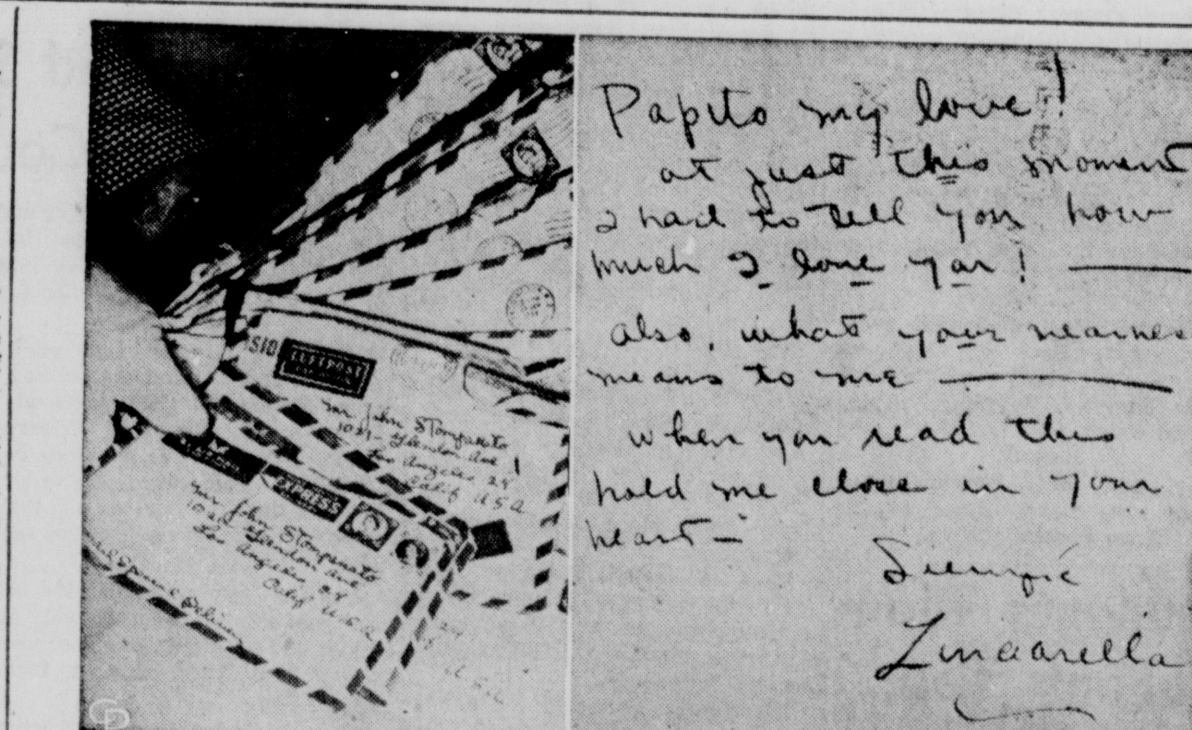 SIO
LUFTPOST
Mr John Stompanato
Glendon Ave
Los Angeles 24
Calif U.S.A.
EXPRESS
Mr John Stompanato
Glendon Ave
Los Angeles 24
Calif U.S.A.
U.S.A.
Papito my love!
at just this moment
I had to tell you how
much I love you! —
also, what your nearnes
means to me —
when you read this
hold me close in your
heart —
Siempre